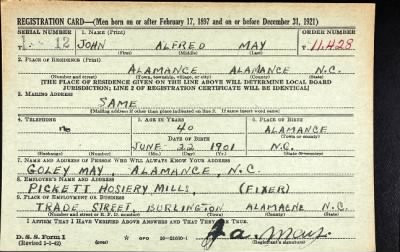 REGISTRATION CARD—(Men born on or after February 17, 1897 and on or before December 31, 1921)
SERIAL NUMBER 1. NAME (Print) ORDER NUMBER
12 JOHN ALFRED MAY 11,428
(First) (Middle) (Last)
2. PLACE OF RESIDENCE (Print)
ALAMANCE ALAMANCE N.C.
(Number and street) (Town, township, village, or city) (County) (State)
[THE PLACE OF RESIDENCE GIVEN ON THE LINE ABOVE WILL DETERMINE LOCAL BOARD
JURISDICTION; LINE 2 OF REGISTRATION CERTIFICATE WILL BE IDENTICAL]
3. MAILING ADDRESS
SAME
[Mailing address if other than place indicated on line 2. If same insert word same]
4. TELEPHONE 5. AGE IN YEARS 6. PLACE OF BIRTH
no 40 ALAMANCE
DATE OF BIRTH (Town or county)
JUNE 22 1901 N.C.
(Exchange) (Number) (Mo.) (Day) (Yr.) (State or country)
7. NAME AND ADDRESS OF PERSON WHO WILL ALWAYS KNOW YOUR ADDRESS
GOLEY MAY, ALAMANCE, N.C.
8. EMPLOYER'S NAME AND ADDRESS
PICKETT HOSIERY MILLS, (FIXER)
9. PLACE OF EMPLOYMENT OR BUSINESS
TRADE STREET, BURLINGTON ALAMACNE N.C.
(Number and street or R. F. D. number) (Town) (County) (State)
I AFFIRM THAT I HAVE VERIFIED ABOVE ANSWERS AND THAT THEY ARE TRUE.
D. S. S. Form 1
(Revised 1-1-42) GPO 16—21630-1 J. A. May
(Registrant's signature)